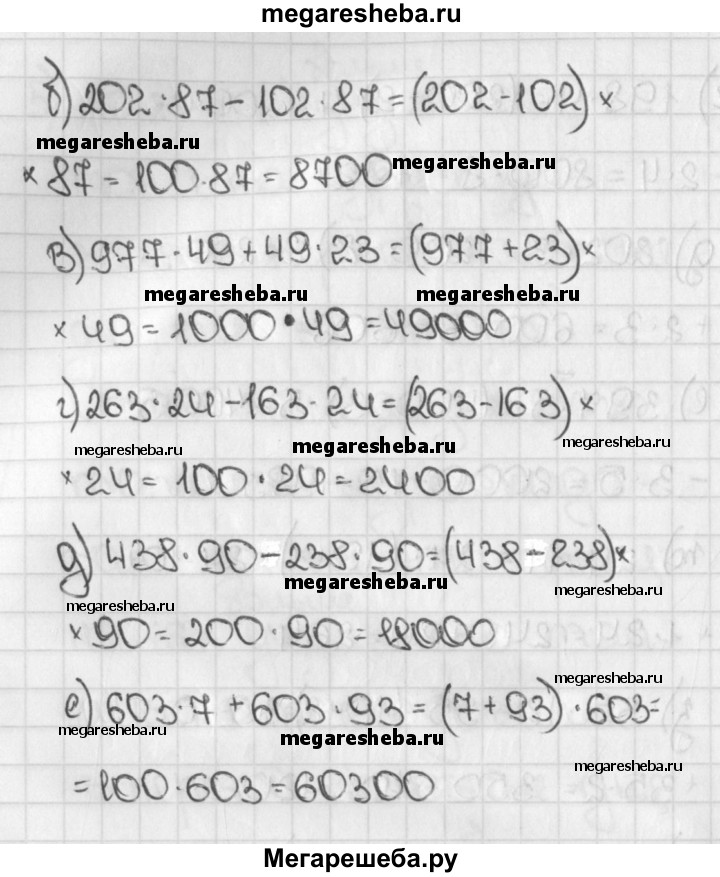 megaresheba.ru
б) 202·87-102·87=(202-102)×
megaresheba.ru
megaresheba.ru
×87=100·87=8700
в) 977·49+49·23=(977+23)×
megaresheba.ru megaresheba.ru
×49=1000·49=49000
г) 263·24-163·24=(263-163)×
megaresheba.ru megaresheba.ru megaresheba.ru
×24=100·24=2400
д) 438·90-238·90=(438-238)×
megaresheba.ru megaresheba.ru megaresheba.ru
×90=200·90=18000
megaresheba.ru
е) 603·7+603·93=(7+93)·603=
megaresheba.ru megaresheba.ru
megaresheba.ru
=100·603=60300
Мегарешеба.ру